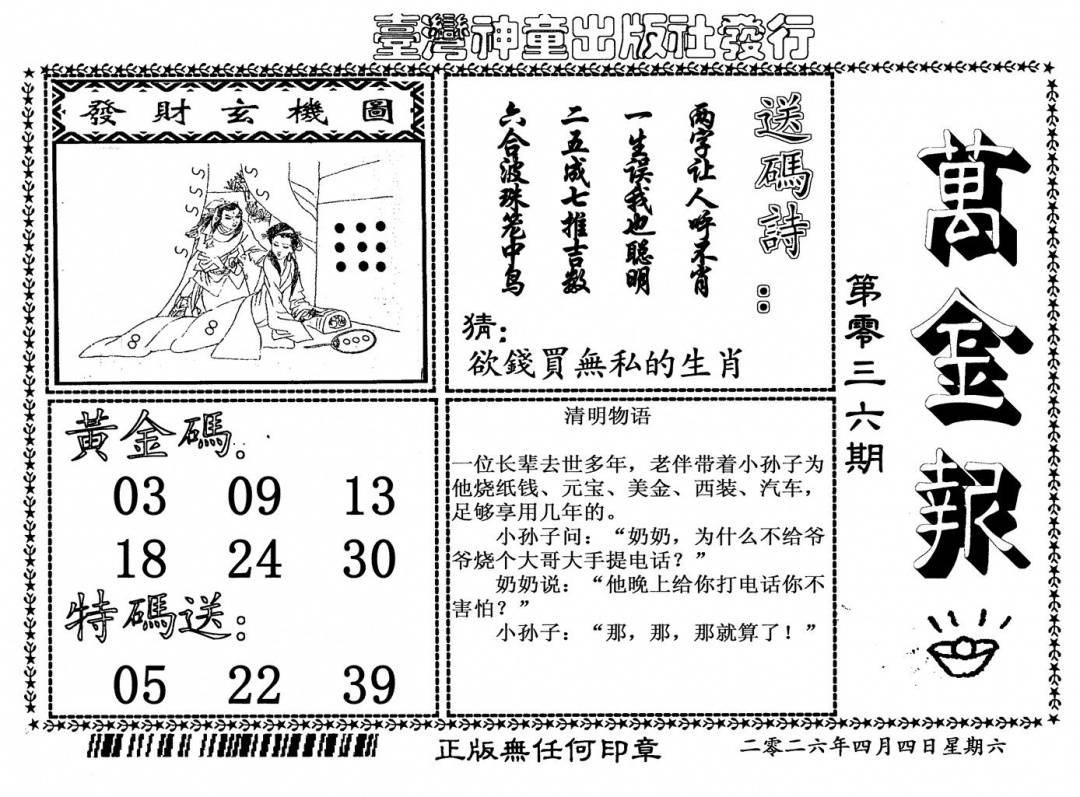 臺灣神童出版社發行
發財玄機圖
送碼詩：
两字让人呼不肖
一生误我也聪明
二五成七推吉数
六合波珠笼中鸟
猜：
欲錢買無私的生肖
萬金報
第零三六期
黃金碼：
03 09 13
18 24 30
特碼送：
05 22 39
清明物语
一位长辈去世多年，老伴带着小孙子为
他烧纸钱、元宝、美金、西装、汽车，
足够享用几年的。
小孙子问：“奶奶，为什么不给爷
爷烧个大哥大手提电话？”
奶奶说：“他晚上给你打电话你不
害怕？”
小孙子：“那，那，那就算了！”
正版無任何印章
二零二六年四月四日星期六